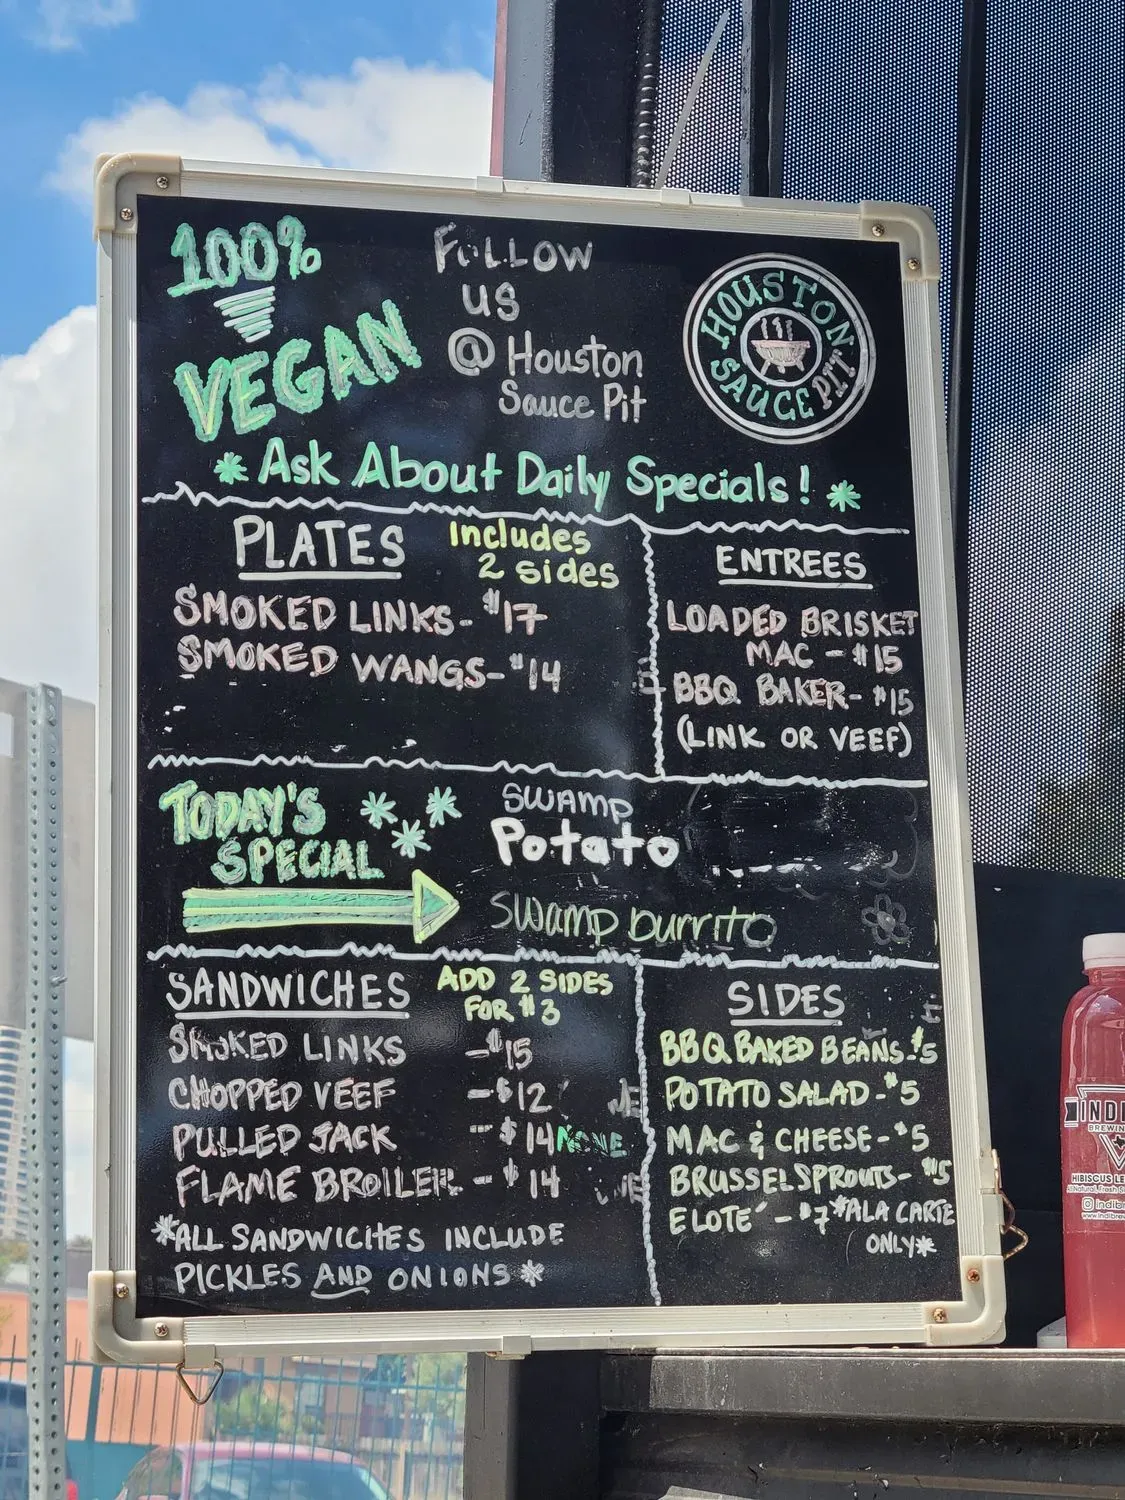 100%
VEGAN
FOLLOW
US
@ Houston
Sauce Pit
HOUSTON
SAUCE PIT
*Ask About Daily Specials! *
PLATES
Includes
2 sides
SMOKED LINKS - $17
SMOKED WANGS - $14
ENTREES
LOADED BRISKET
MAC - $15
BBQ BAKER - $15
(LINK OR VEEF)
TODAY'S
SPECIAL
SWAMP
Potato
Swamp burrito
SANDWICHES
ADD 2 SIDES
FOR $3
SMOKED LINKS - $15
CHOPPED VEEF - $12
PULLED JACK - $14 NONE
FLAME BROILER - $14
*ALL SANDWICHES INCLUDE
PICKLES AND ONIONS *
SIDES
BBQ BAKED BEANS - $5
POTATO SALAD - $5
MAC & CHEESE - $5
BRUSSEL SPROUTS - $5
ELOTE - $7 *ALA CARTE
ONLY*
INDI
BREWIN
HIBISCUS LE